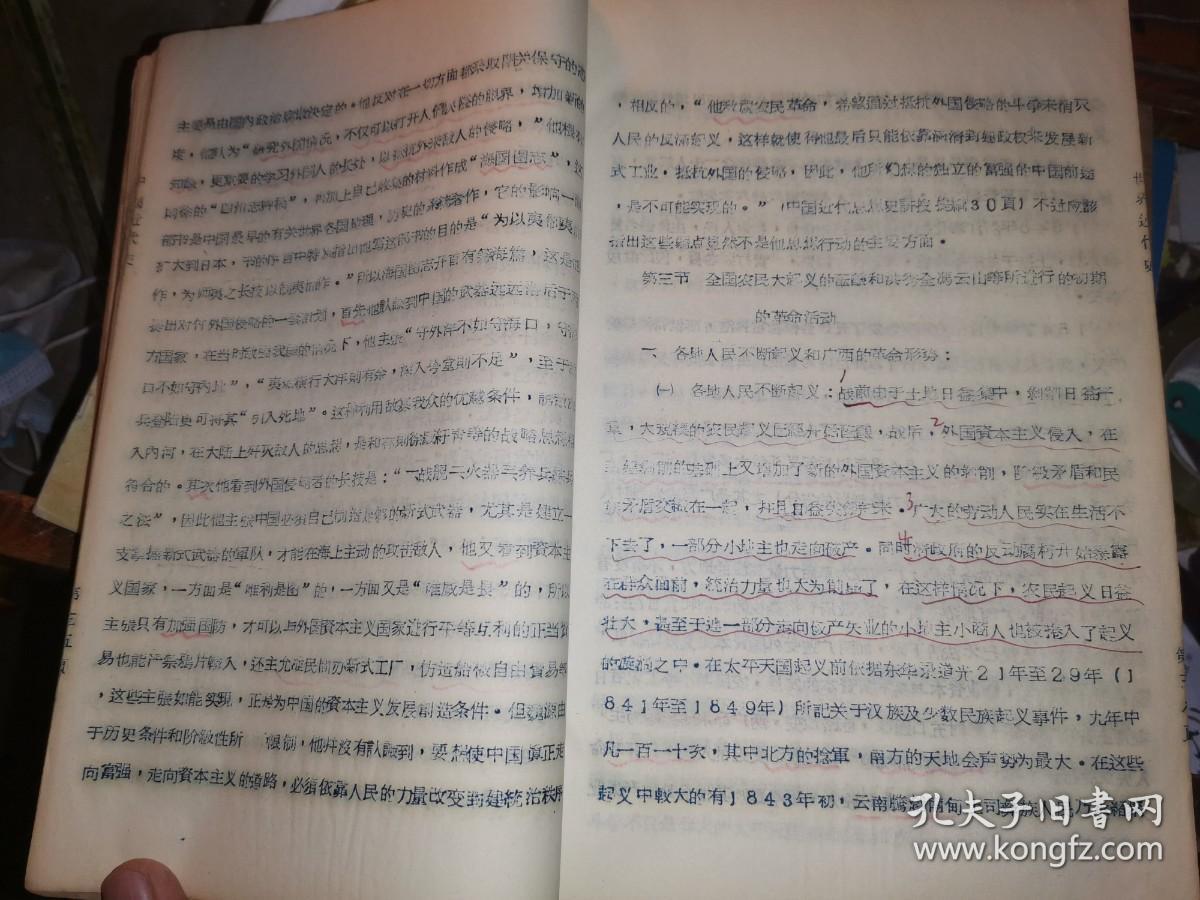 主要是由国内政治腐败决定的。他反对在一切方面都采取闭关保守的
度，他认为“研究外国情况，不仅可以打开人们狭隘的眼界，增加新的
知识，更重要的学习外国人的长处，以抵抗外来敌人的侵略，”他根
同徐的“四洲志”，再加上自己收集的材料作成“海国图志”，这
部书是中国最早的有关世界各国地理，历史的系统著作，它的影响一
扩大到日本，书的序言中特别指出他写这部书的目的是“为以夷制夷
作，为师夷之长技以制夷而作。”所以海国图志开首有筹海篇，这是
提出对付外国侵略的一套计划，首先他认识到中国的武器远远落后于
力国家，在当时敌强我弱的情况下，他主张“守外洋不如守海口，守
口不如守内河”，“夷艇横行大洋则有余，深入堂则不足”，至于
兵登陆更可将其“引入死地”。这种利用敌寡我众的优越条件，
入内河，在大陆上歼灭敌人的思想，是和林则徐的战略思想
符合的。其次他看到外国侵略者的长技是：“一战舰二火器三养兵练
之法”，因此他主张中国必须自己制造足够的新式武器，尤其是建立一
支掌握新式武器的軍队，才能在海上主动的攻击敌人，他又看到資本主
义国家，一方面是“唯利是图”的，一方面又是“唯威是畏”的，所以
主張只有加强国防，才可以与外国資本主义国家进行平等互利的正当
易也能严禁鴉片輸入，还主允许民間办新式工厂，仿造船械自由貿易
，这些主張如能实現，正是为中国的資本主义发展創造条件。但魏源由
于历史条件和阶級性所 限制，他幷沒有認識到，要想使中国眞正走
向富强，走向資本主义的道路，必須依靠人民的力量改变封建統治秩序
第三五頁
，相反的，“他敌視农民革命，希望通过抵抗外国侵略的斗争来消灭
人民的反清起义，这样就使得他最后只能依靠满清封建政权来发展新
式工业，抵抗外国的侵略，因此，他所幻想的独立的富强的中国前途
，是不可能实現的。”（中国近代思想史讲授提綱30頁）不过应該
指出这些缺点显然不是他思想行动的主要方面。
第三节 全国农民大起义的蘊釀和洪秀全馮云山等所进行的初期
的革命活动
一、各地人民不断起义和广西的革命形势：
㈠ 各地人民不断起义：战前由于土地日益集中，剝削日益
重，大規模的农民起义已經开始蘊釀，战后，外国資本主义侵入，在
封建剝削的基础上又增加了新的外国資本主义的剝削，阶級矛盾和民
族矛盾交織在一起，幷且日益尖銳起来。广大的劳动人民实在生活不
下去了，一部分小地主也走向破产。同时清政府的反动腐朽开始暴露
在群众面前，統治力量也大为削弱了，在这样情况下，农民起义日益
壮大，甚至于連一部分走向破产失业的小地主小商人也被捲入了起义
的漩渦之中。在太平天国起义前依据东华录道光21年至29年（1
841年至1849年）所記关于汉族及少数民族起义事件，九年中
凡一百一十次，其中北方的捻軍，南方的天地会声势为最大。在这些
起义中較大的有1843年初，云南騰越
世界近代史
1
2
3
4
孔夫子旧書网
www.kongfz.com